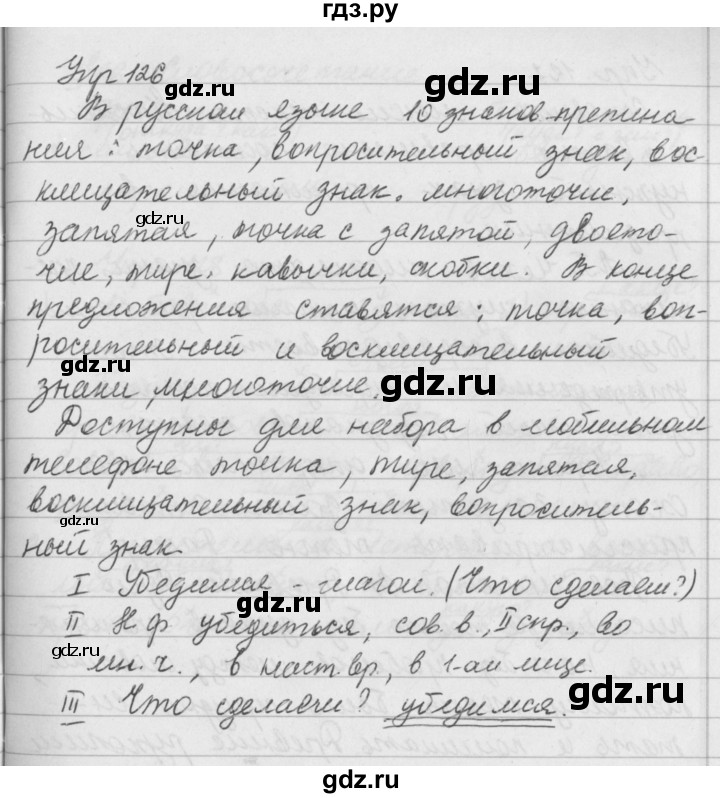 гдз.ру
Упр 126
В русском языке 10 знаков препина
ния: точка, вопросительный знак, вос-
клицательный знак. многоточие,
gdz.ru
запятая, точка с запятой, двоето-
чие, тире, кавычки, скобки. В конце
gdz.ru
предложения ставятся: точка, воп-
росительный и восклицательный
знаки, многоточие.
gdz.ru
Доступны для набора в мобильном
телефоне точка, тире, запятая,
восклицательный знак, вопроситель-
gdz.ru
ный знак
I Убедимся - глагол. (Что сделаем?)
gdz.ru
II Н.ф убедиться, сов. в., II спр., во
gdz.ru
мн. ч., в наст вр, в 1-ом лице.
gdz.ru
III Что сделаем? убедимся.
gdz.ru
gdz.ru